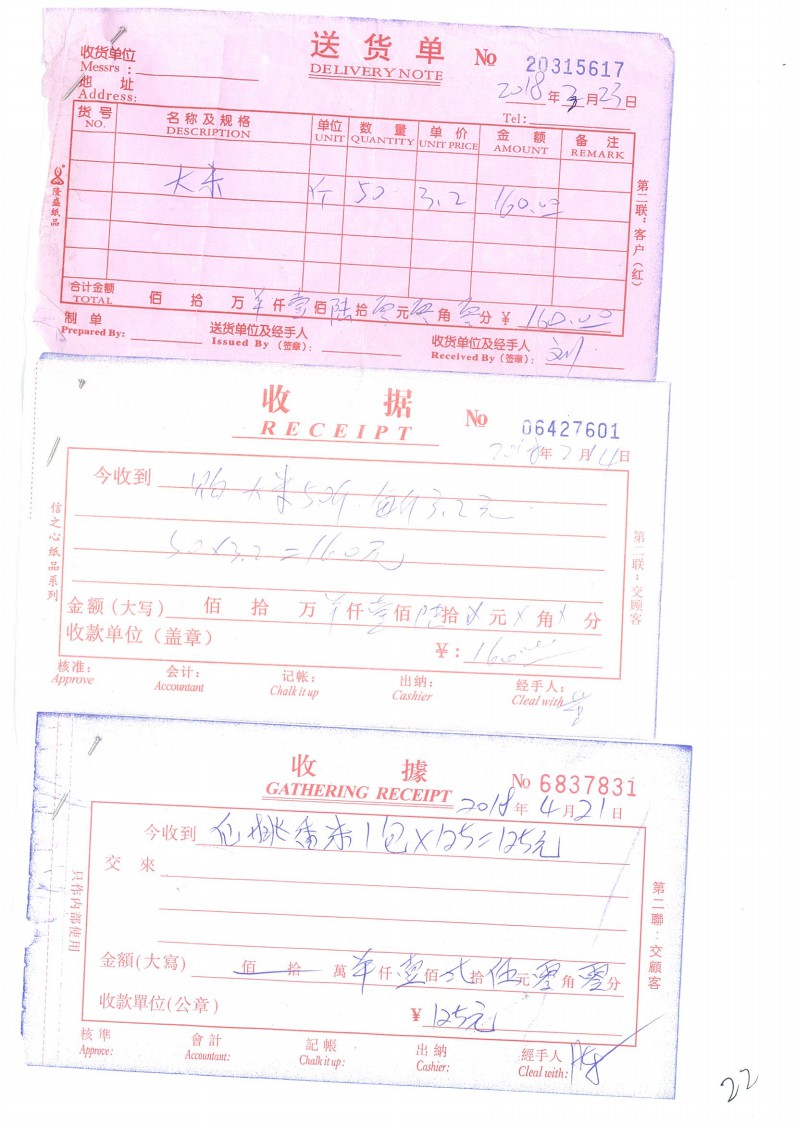 送货单 No 20315617
DELIVERY NOTE
收货单位
Messrs :
2018年3月23日
地 址
Address:
Tel:
货号 名称及规格 单位 数量 单价 金额 备注
NO. DESCRIPTION UNIT QUANTITY UNIT PRICE AMOUNT REMARK
大米 斤 50 3.2 160.00
合计金额
TOTAL 佰 拾 万 羊仟壹佰陆拾零元零角零分 ¥ 160.00
制单
Prepared By:
送货单位及经手人
Issued By (签章):
收货单位及经手人
Received By (签章): 刘
隆盛纸品
第二联:客户(红)
收 据 No 06427601
RECEIPT
2018年2月14日
今收到 大米50斤.每斤3.2元
50×3.2=160元
金额(大写) 佰 拾 万 仟壹佰陆拾 元 角 分
收款单位(盖章) ¥: 160.00
核准: 会计: 记帐: 出纳: 经手人:
Approve Accountant Chalk it up Cashier Cleal with
信之心纸品系列
第二联:交顾客
收 據 No 6837831
GATHERING RECEIPT
2018年4月21日
今收到 仙桃香米1包×125=125元
交 來
金額(大寫) 佰 拾 萬 羊仟壹佰弍拾伍元零角零分
收款單位(公章) ¥ 125元
核準 會計 記帳 出納 經手人
Approve: Accountant: Chalk it up: Cashier: Cleal with:
只作內部使用
第二聯:交顧客
22